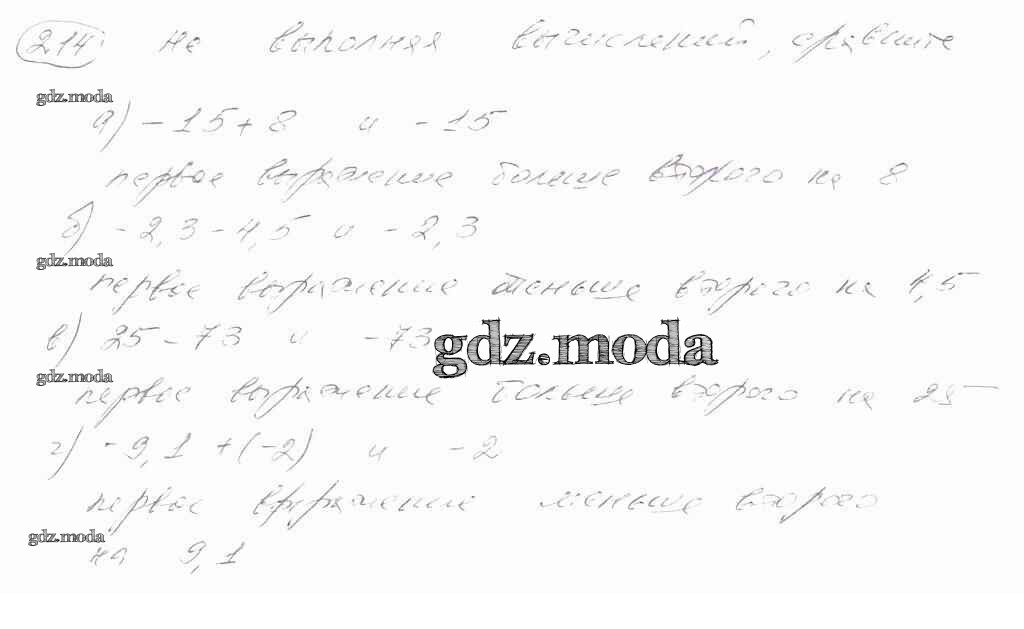 214 Не выполняя вычислений, сравните
gdz.moda
а) -15 + 8 и -15
первое выражение больше второго на 8
б) -2,3 - 4,5 и -2,3
gdz.moda
первое выражение меньше второго на 4,5
в) 25 - 73 и -73
gdz.moda
gdz.moda
первое выражение больше второго на 25
г) -9,1 + (-2) и -2
первое выражение меньше второго
gdz.moda
на 9,1